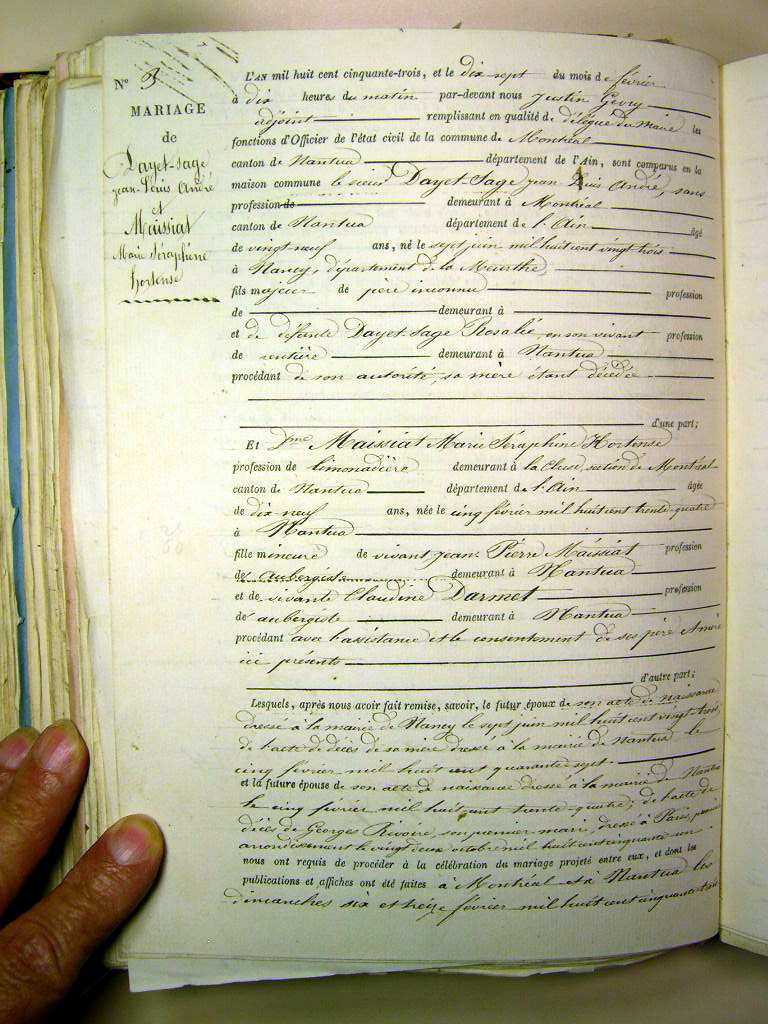 N° 3
MARIAGE
de
Dayet-Sage
Jean Louis André
et
Maissiat
Marie Séraphine
hortense
L'AN mil huit cent cinquante-trois, et le dix sept du mois de février
à dix heures du matin par-devant nous Justin Gevry
adjoint remplissant en qualité de délégué du Maire les
fonctions d'Officier de l'état civil de la commune de Montréal
canton de Nantua département de l'Ain, sont comparus en la
maison commune le sieur Dayet-Sage Jean Louis André, sans
profession de demeurant à Montréal
canton de Nantua département de l'Ain âgé
de vingt neuf ans, né le sept juin mil huit cent vingt trois
à Nancy, département de la Meurthe
fils majeur de père inconnu profession
de demeurant à
et de défunte Dayet Sage Rosalie, en son vivant profession
de rentière demeurant à Nantua
procédant de son autorité, sa mère étant décédée
d'une part;
Et Dme Maissiat Marie Séraphine Hortense
profession de limonadière demeurant à la Cluse, section de Montréal
canton de Nantua département de l'Ain âgée
de dix-neuf ans, née le cinq février mil huit cent trente quatre
à Nantua
fille mineure de vivant Jean Pierre Maissiat profession
de aubergiste demeurant à Nantua
et de vivante Claudine Darmet profession
de aubergiste demeurant à Nantua
procédant avec l'assistance et le consentement de ses père et mère
ici présents
d'autre part;
Lesquels, après nous avoir fait remise, savoir, le futur époux de son acte de naissance
dressé à la mairie de Nancy le sept juin mil huit cent vingt trois
de l'acte de décès de sa mère dressé à la mairie de Nantua le
cinq février mil huit cent quarante sept.
et la future épouse de son acte de naissance dressé à la mairie de Nantua
le cinq février mil huit cent trente quatre; de l'acte de
décès de Georges Rivoire, son premier mari, dressé à Paris, premier
arrondissement le vingt deux octobre mil huit cent cinquante un
nous ont requis de procéder à la célébration du mariage projeté entre eux, et dont les
publications et affiches ont été faites à Montréal et à Nantua les
dimanches six et treize février mil huit cent cinquante trois